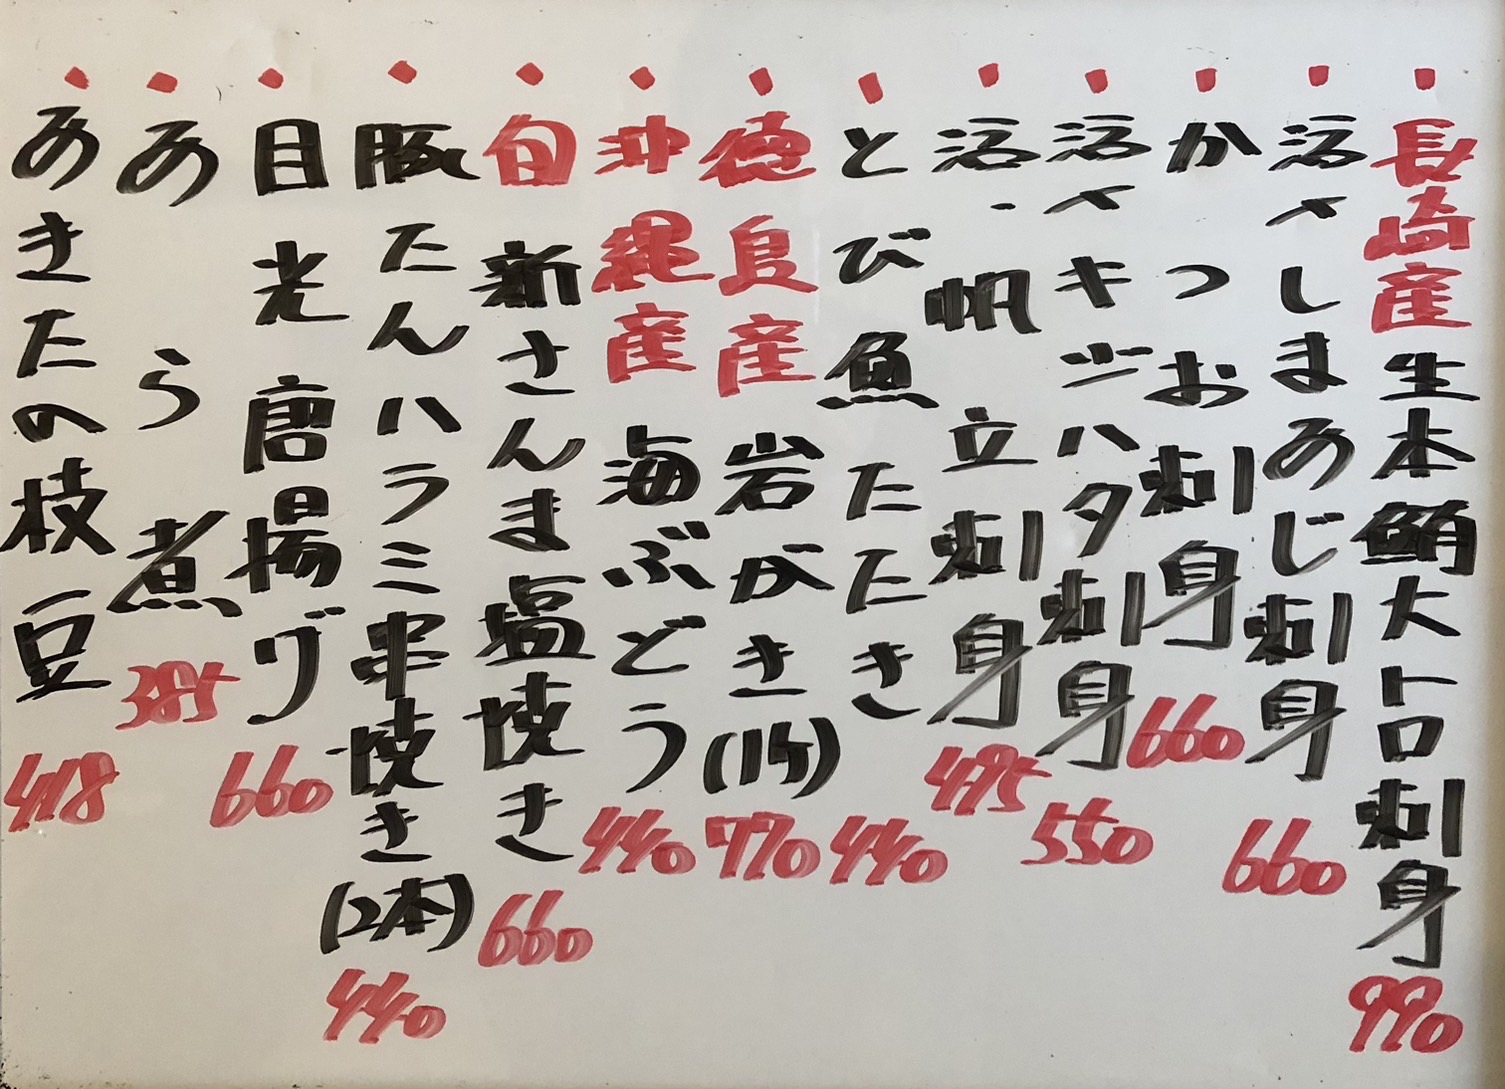 ・長崎産生本鮪大トロ刺身 990
・活〆しまあじ刺身 660
・かつお刺身 660
・活〆キジハタ刺身 550
・活・帆立刺身 495
・とび魚たたき 440
・徳島産岩がき(1ケ) 770
・沖縄産海ぶどう 440
・旬新さんま塩焼き 660
・豚たんハラミ串焼き(2本) 440
・目光唐揚げ 660
・あら煮 385
・あきたの枝豆 418